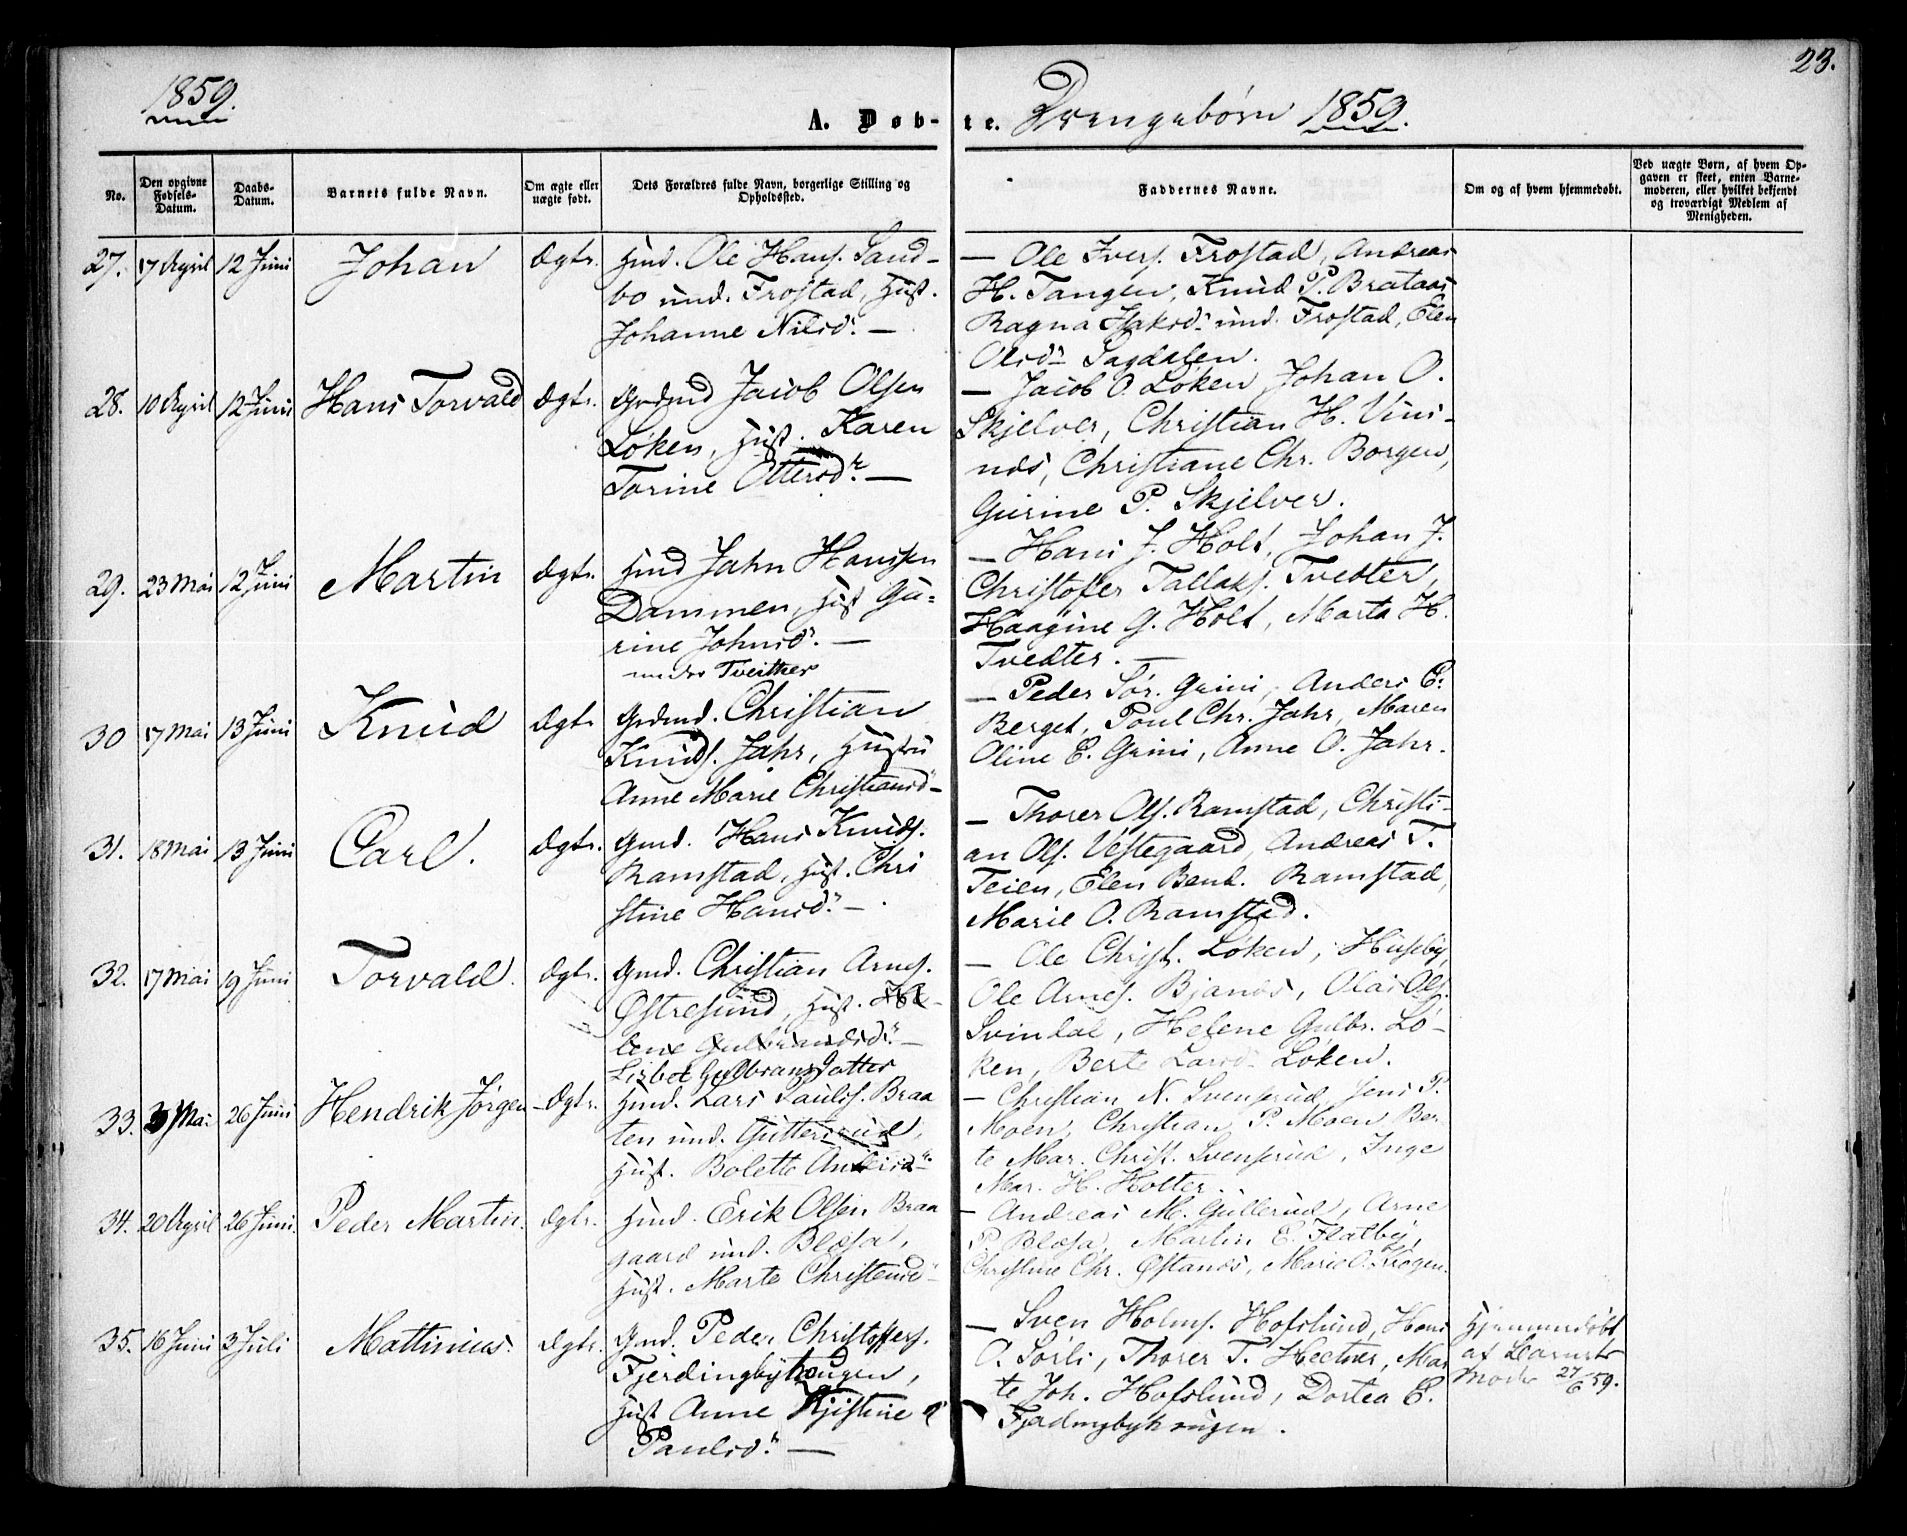 23.
1859.
A. Døb-
te. Drengebørn 1859.
No.
Den opgivne Fødsels-Datum.
Daabs-Datum.
Barnets fulde Navn.
Om ægte eller uægte født.
Dets Forældres fulde Navn, borgerlige Stilling og Opholdssted.
Faddernes Navne.
Om og af hvem hjemmedøbt.
Ved uægte Børn, af hvem Opgaven er skeet, enten Barnemoderen, eller hvilket bekjendt og troværdigt Medlem af Menigheden.
27. 17 April 12 Juni Johan Ægte. Hmd. Ole Hans. Sand-
bo und. Frostad, Hust.
Johanne Nilsd. —
— Ole Ivers. Frostad, Andreas
H. Tangen, Knud P. Brataas
Ragna Isaksd. und. Frostad, Elen
Olsd. Sagdalen.
28. 10 April 12 Juni Hans Torvald Ægte. Grdmd Jacob Olsen
Løken, Hust. Karen
Torine Ottersd. —
— Jacob O. Løken, Johan O.
Skjelver, Christian H. Vini-
næs, Christiane Chr. Borgen,
Gurine P. Skjelver.
29. 23 Mai 12 Juni Martin Ægte. Hmd Jahn Hanssen
Dammen, Hust Gu-
rine Johnsd. —
under Tveither
— Hans J. Holt, Johan J.
Christofer Tallaks. Tvedter,
Haagine G. Holt, Marta H.
Tvedter. —
30 17 Mai 13 Juni Knud Ægte Grdmd. Christian
Knuds. Jahr, Hustru
Anne Marie Christiansd.
— Peder Sør. Grini, Anders E.
Berget, Poul Chr. Jahr, Maren
Oline E. Grini, Anne O. Jahr.
31. 18 Mai 13 Juni Carl. Ægte. Gmd. Hans Knuds.
Ramstad, Hust. Chri
stine Hansd. —
— Thorer Ols. Ramstad, Christi-
an Ols. Vestegaard, Andreas T.
Teien, Elen Bend. Ramstad,
Marie O. Ramstad.
32. 17 Mai 19 Juni Torvald. Ægte. Gmd. Christian Arnes.
Østresund, Hust. He-
lene Gulbrandsd. —
Lisbet Gulbransdatter
— Ole Christ. Løken, Huseby,
Ole Arnes. Bjanæs, Olai Ols.
Svindal, Helene Gulbr. Lø-
ken, Berte Larsd. Løken.
33. 3 Mai 26 Juni Hendrik Jørgen Ægte. Hmd. Lars Pauls. Braa
ten und. Guttersrud,
Hust. Bolette Andersd.
— Christian N. Svenserud, Jens P.
Moen, Christian P. Moen, Ber-
te Mar. Christ. Svenserud, Inge
Mar. H. Holter.
34. 20 April 26 Juni. Peder Martin. Ægte. Hmd. Erik Olsen Braa
gaard und. Blæsa,
Hust. Marte Christensd.
— Andreas M. Gullerud, Arne
P. Blæsa, Martin E. Flatby,
Christine Chr. Østanæs, Marie O. Krogen.
35. 16 Juni 3 Juli Mattinius. Ægte. Gmd. Peder Christoffers.
Fjerdingbyhaugen,
Hust Anne Kjistine
Paulsd. —
— Sven Holms. Hofslund, Hans
O. Sørli, Thorer T. Hectner, Mar
te Joh. Hofslund, Dortea E.
Fjerdingbyhaugen.
Hjemmedøbt
af Barnets
Moder 27/6 59.